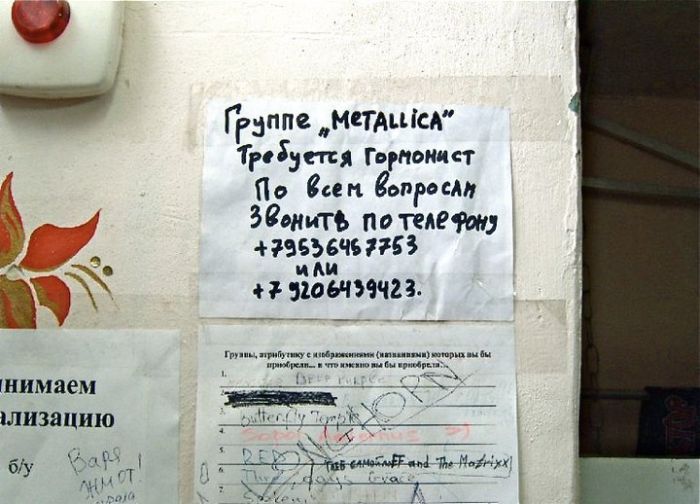 Группе „МeTALLiCA"
Требуется Гормонист
По всем вопросам
Звонить по телефону
+79536457753
или
+79206439423.
Группы, атрибутику с изображениями (названиями) которых вы бы
приобрели... и что именно вы бы приобрели...
1. Deep Purple
2.
3. Butterfly Temple
4.
5. RED
6. Three days Grace
and The Matrixx
7.
нимаем
ализацию
б/у
Варя
ЖМОТ!